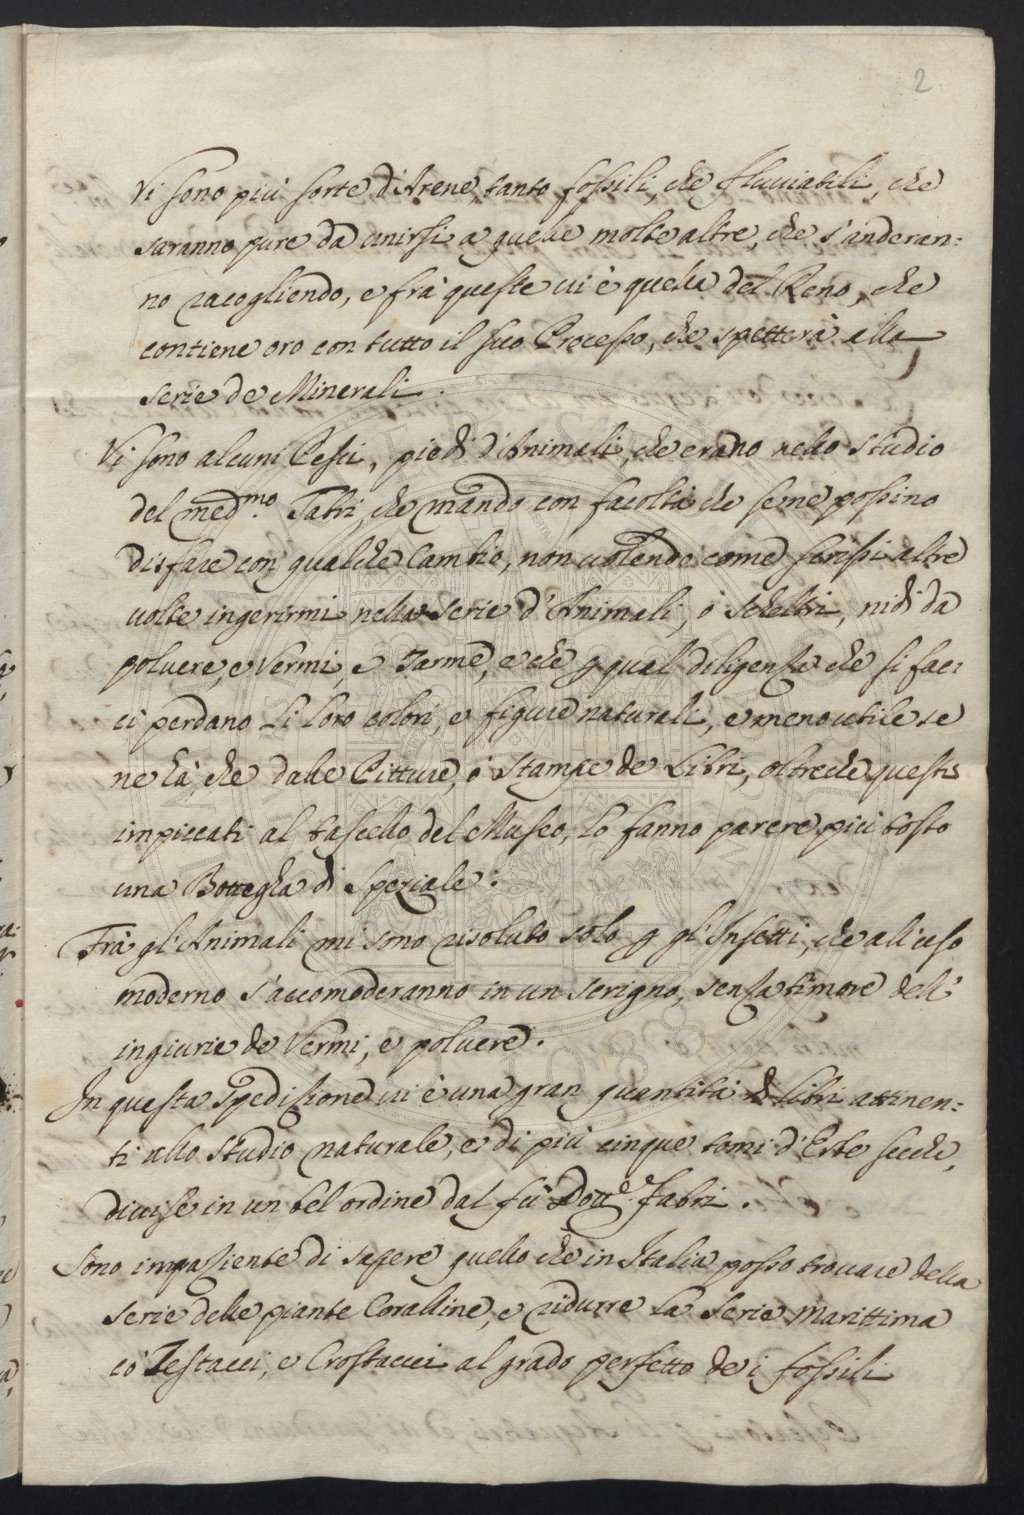 2
Vi sono più sorte d'Arene, tanto fossili, che fluviatili, che
saranno pure da unirsi a quelle molte altre, che s'anderan:
no racogliendo, e frà queste vi è quella del Reno, che
contiene oro con tutto il suo Processo, che spetterà alla
serie de Minerali.
Vi sono alcuni Pesci, piedi d'Animali, che erano nello studio
del med.mo Fabri, che mando con facoltà che se ne possino
disfare con qualche Cambio, non volendo come scrissi altre
volte ingerirmi nella serie d'Animali, ò scheltri, nidi da
polvere, e Vermi, e Tarme, e che p qual diligenza che si fac:
ci perdano Li Loro colori, e figure naturali, e meno utile se
ne hà che dalle Pitture, ò stampe de Libri, oltreche questi
impiccati al tascello del Museo, Lo fanno parere più tosto
una Bottegha di Speziale.
Frà gl'Animali mi sono risoluto solo p gl'Insetti, che all'uso
moderno s'accomoderanno in un scrigno, senza timore dell'
ingiurie de Vermi, e polvere.
In questa Spedizione vi è una gran quantità di Libri attinen:
ti allo studio naturale, e di più cinque tomi d'Erbe secche,
divise in un bel ordine dal fù Dott.e Fabri.
Sono impaziente di sapere quello che in Italia posso trovare della
serie delle piante Coralline, e ridurre La serie Marittima
co' Testacei, e Crostacei al grado perfetto de i fossili